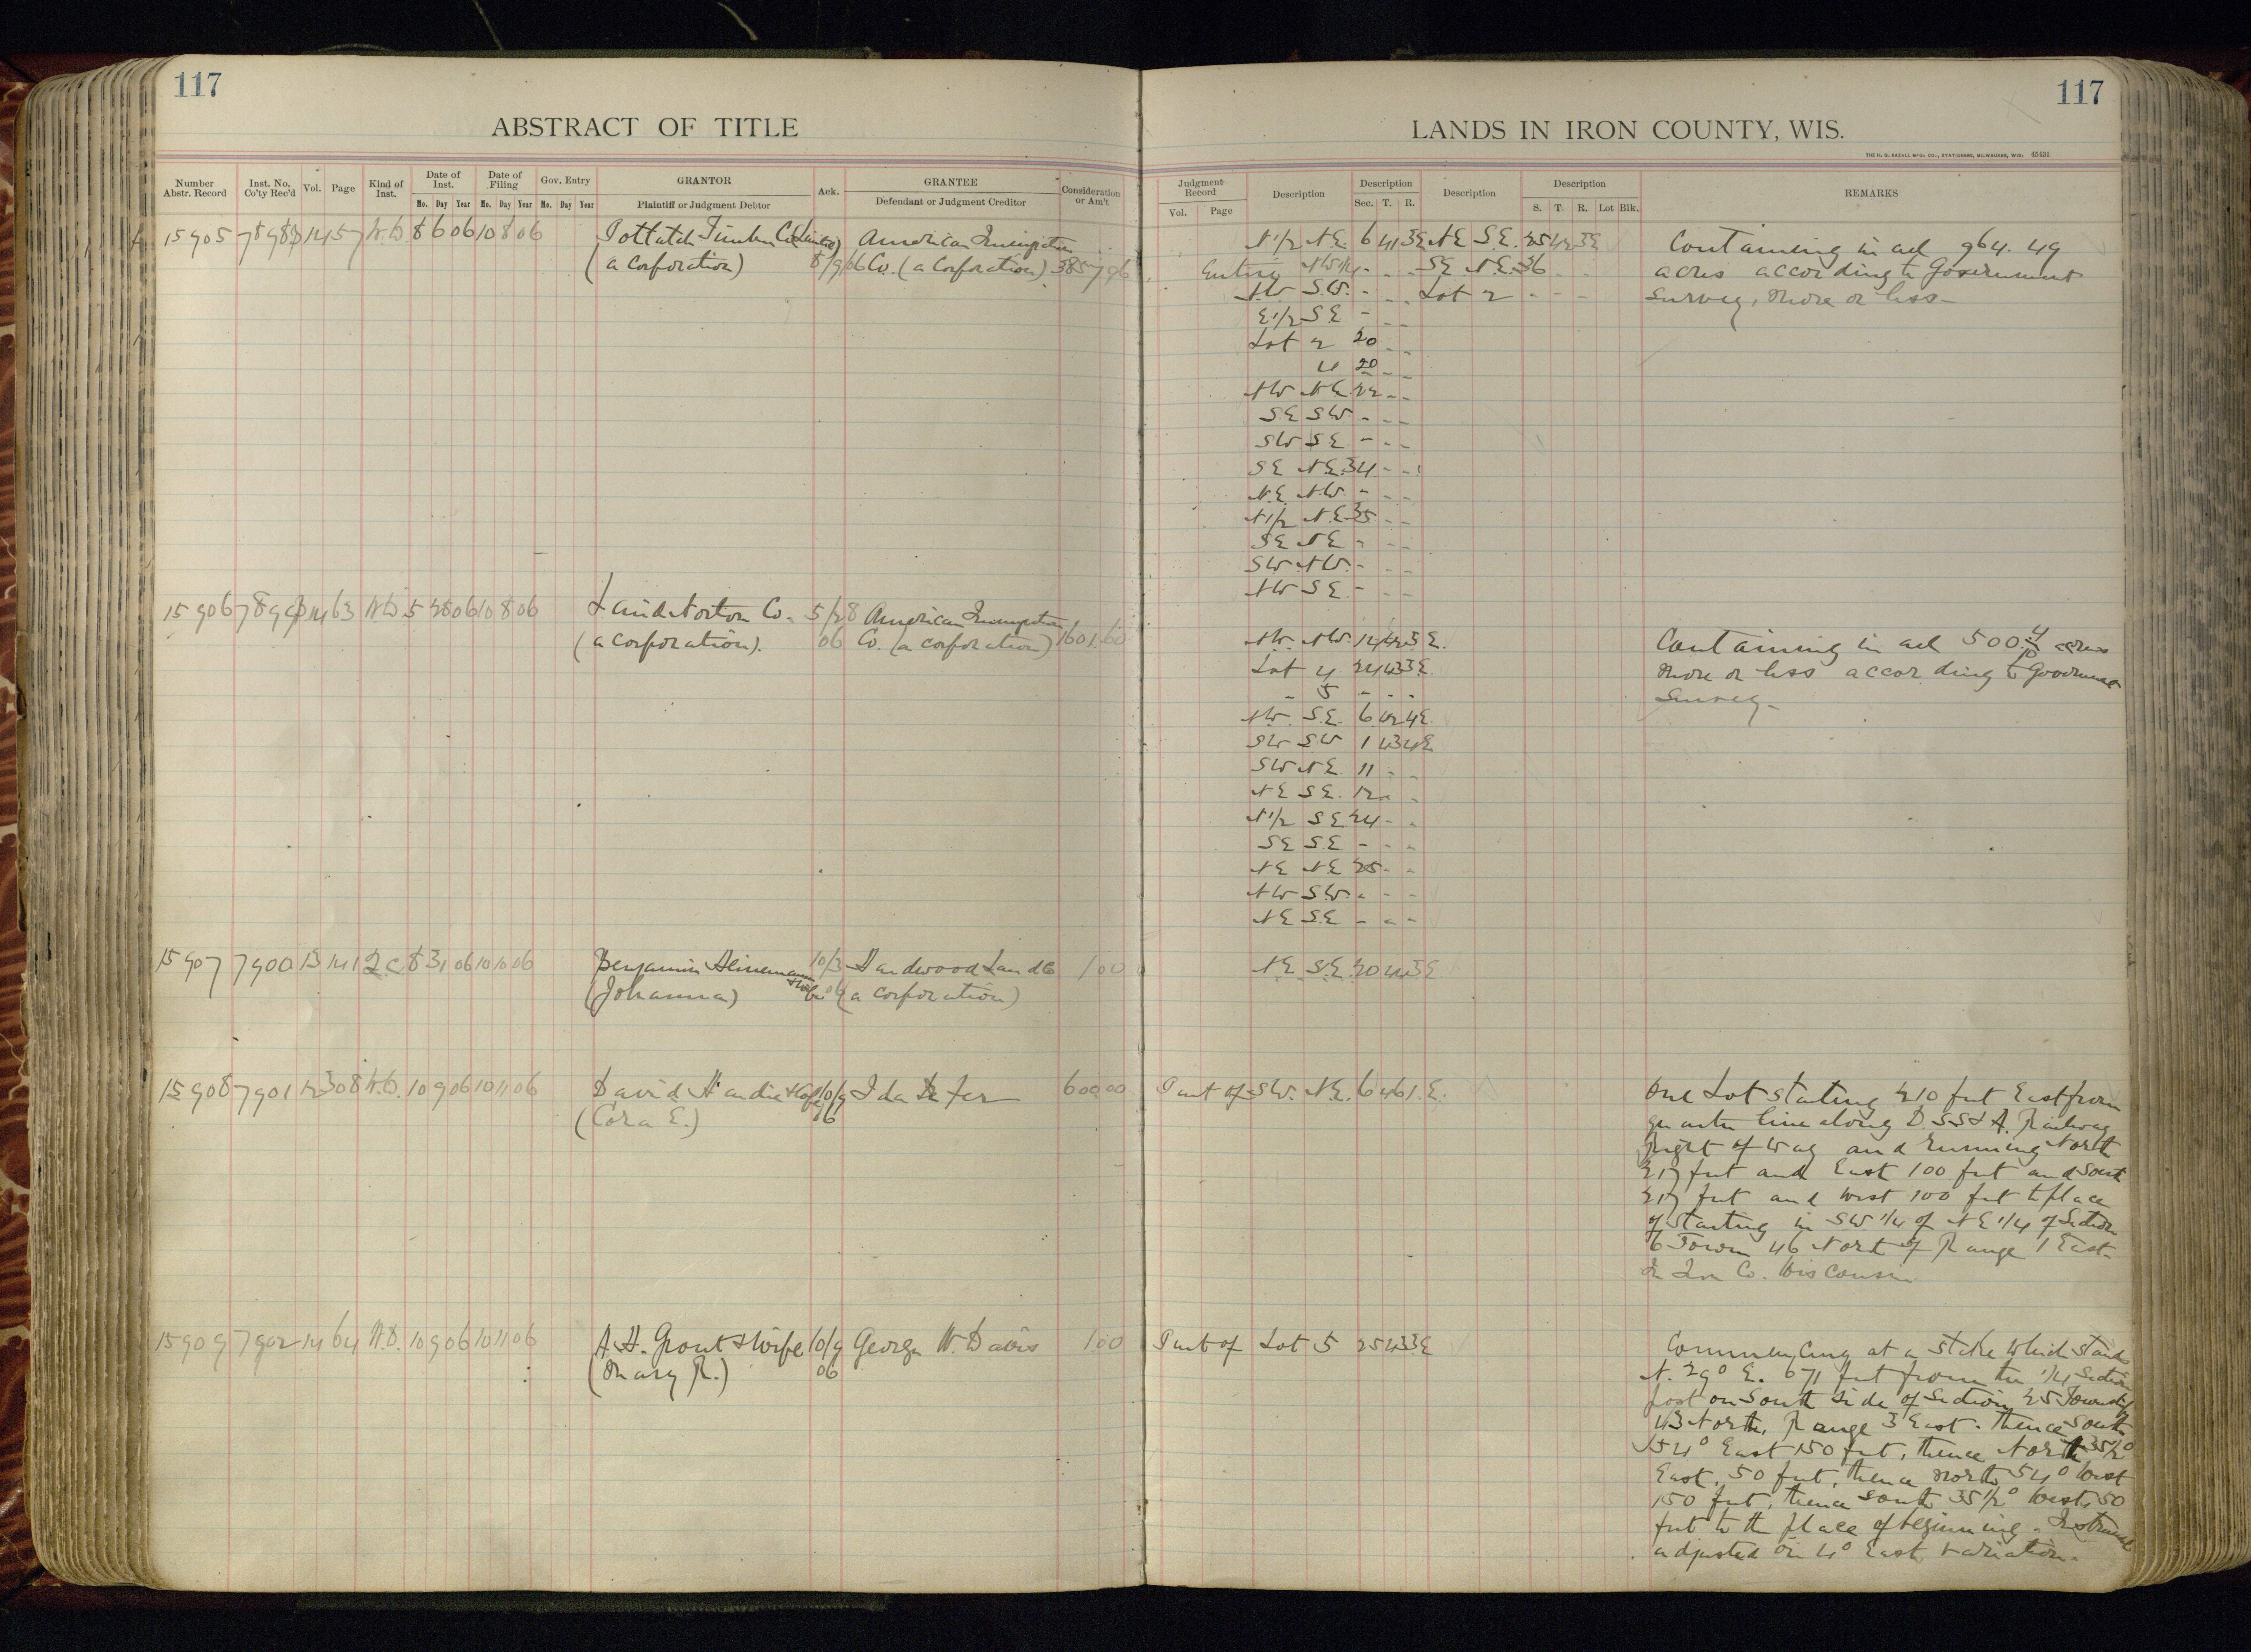 117
ABSTRACT OF TITLE
Number Abstr. Record
Inst. No. Co'ty Rec'd
Vol.
Page
Kind of Inst.
Date of Inst.
Mo. Day Year
Date of Filing
Mo. Day Year
Gov. Entry
Mo. Day Year
GRANTOR
Plaintiff or Judgment Debtor
Ack.
GRANTEE
Defendant or Judgment Creditor
Consideration or Am't
15905 14 57 W.D. 8 6 06 10 8 06 Potlatch Timber Co. American Immigration
(a Corporation) 8/9 06 Co. (a Corporation) 3857 96
15906 14 63 W.D. 5 28 06 10 8 06 Laird Norton Co. 5/28 American Immigration
(a Corporation). 06 Co. (a corporation) 1601.60
15907 7900 13 141 2.C. 8 31 06 10 10 06 Benjamin Heinemann 10/3 Hardwood Land Co
(Johanna) & wife 06 (a corporation) 1 00
15908 7901 12 308 W.D. 10 9 06 10 11 06 David Handie & wife 10/9 Ida 600 00
(Cora E.) 06
15909 7902 14 64 W.D. 10 9 06 10 11 06 A.H. Grout & Wife 10/9 George W. Davis 1.00
(Mary R.) 06
117
LANDS IN IRON COUNTY, WIS.
THE H. G. RAZALL MFG. CO., STATIONERS, MILWAUKEE, WIS. 45431
Judgment Record
Vol. Page
Description
Description
Sec. T. R.
Description
Description
S. T. R. Lot Blk.
REMARKS
N 1/2 N.E. 6 41 3E N.E. S.E. 25 42 3E Containing in all 964.49
Entire NW 1/4 - - - SE N.E. 36 - - acres according to Government
N.W S.W. - - - Lot 2 - - - Survey, more or less -
E 1/2 S E - - -
Lot 2 20 - -
4 20 - -
NW N.E. 22 - -
SE SW. - - -
SW SE - - -
SE N.E. 34 - -
N.E. N.W. - - -
N 1/2 N.E. 35 - -
SE NE - - -
SW NW. - - -
NW SE. - - -
NW. NW. 12 42 3 E. Containing in all 500.4/10 acres
Lot 4 24 43 3E. more or less according to Government
- 5 - - - Survey -
NW. S.E. 6 42 4E.
SW SW 1 43 4E
SW NE 11 - -
NE SE. 12 - -
N 1/2 SE 24 - -
SE S.E - - -
NE NE 25 - -
NW S.W. - - -
NE S.E - - -
N.E S.E. 20 44 3E
Part of SW. N.E. 6 46 1.E. One Lot starting 210 feet East from
quarter line along D.S.S & A. Railway
Right of Way and running North
217 feet and East 100 feet and South
217 feet and West 100 feet to place
of starting in SW 1/4 of NE 1/4 of Section
6 Town 46 North of Range 1 East -
In Iron Co. Wisconsin
Part of Lot 5 25 43 3E Commencing at a Stake which stands
N. 29° E. 671 feet from the 1/4 Section
post on South side of Section 25 Township
43 North, Range 3 East. thence South
54° East 150 feet, thence North 35 1/2°
East, 50 feet, thence North 54° West
150 feet, thence South 35 1/2° West, 50
feet to the place of beginning. Instrument
adjusted on 4° East variation.